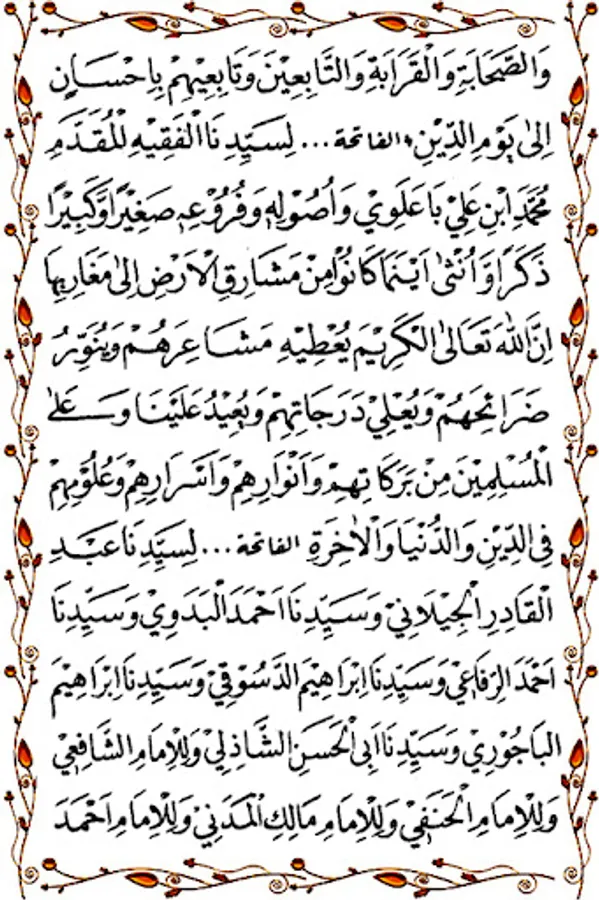 وَالصَّحَابَةِ وَالْقَرَابَةِ وَالتَّابِعِيْنَ وَتَابِعِيْهِمْ بِاِحْسَانٍ
اِلىٰ يَوْمِ الدِّيْنِ، الفاتحة ... لِسَيِّدِنَا الْفَقِيْهِ الْمُقَدَّمِ
مُحَمَّدِ ابْنِ عَلِيْ بَاعَلَوِيْ وَاُصُوْلِهِ وَفُرُوْعِهِ صَغِيْرًا وَّكَبِيْرًا
ذَكَرًا وَّاُنْثىٰ اَيْنَمَا كَانُوْا مِنْ مَشَارِقِ الْاَرْضِ اِلىٰ مَغَارِبِهَا
اِنَّ اللهَ تَعَالىٰ الْكَرِيْمَ يُعْطِيْهِ مَشَاعِرَهُمْ وَيُنَوِّرُ
ضَرَائِحَهُمْ وَيُعْلِيْ دَرَجَاتِهِمْ وَيُعِيْدُ عَلَيْنَا وَعَلىٰ
الْمُسْلِمِيْنَ مِنْ بَرَكَاتِهِمْ وَاَنْوَارِهِمْ وَاَسْرَارِهِمْ وَعُلُوْمِهِمْ
فِى الدِّيْنِ وَالدُّنْيَا وَالْاٰخِرَةِ الفاتحة ... لِسَيِّدِنَا عَبْدِ
الْقَادِرِ الْجِيْلَانِيْ وَسَيِّدِنَا اَحْمَدَ الْبَدَوِيْ وَسَيِّدِنَا
اَحْمَدَ الرِّفَاعِيْ وَسَيِّدِنَا اِبْرَاهِيْمَ الدَّسُوْقِيْ وَسَيِّدِنَا اِبْرَاهِيْمَ
الْبَاجُوْرِيْ وَسَيِّدِنَا اَبِى الْحَسَنِ الشَّاذِلِيْ وَلِلْاِمَامِ الشَّافِعِيْ
وَلِلْاِمَامِ الْحَنَفِيْ وَلِلْاِمَامِ مَالِكِ الْمَدَنِيْ وَلِلْاِمَامِ اَحْمَدَ